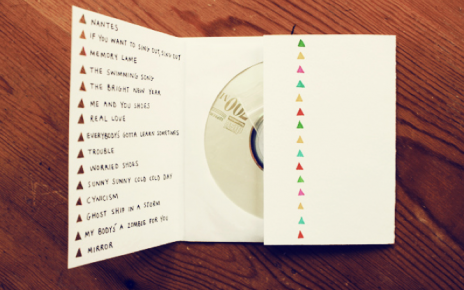 NANTES
IF YOU WANT TO SING OUT, SING OUT
MEMORY LANE
THE SWIMMING SONG
THE BRIGHT NEW YEAR
ME AND YOU SHOES
REAL LOVE
EVERYBODY'S GOTTA LEARN SOMETIMES
TROUBLE
WORRIED SHOES
SUNNY SUNNY COLD COLD DAY
CYNICISM
GHOST SHIP IN A STORM
MY BODY'S A ZOMBIE FOR YOU
MIRROR